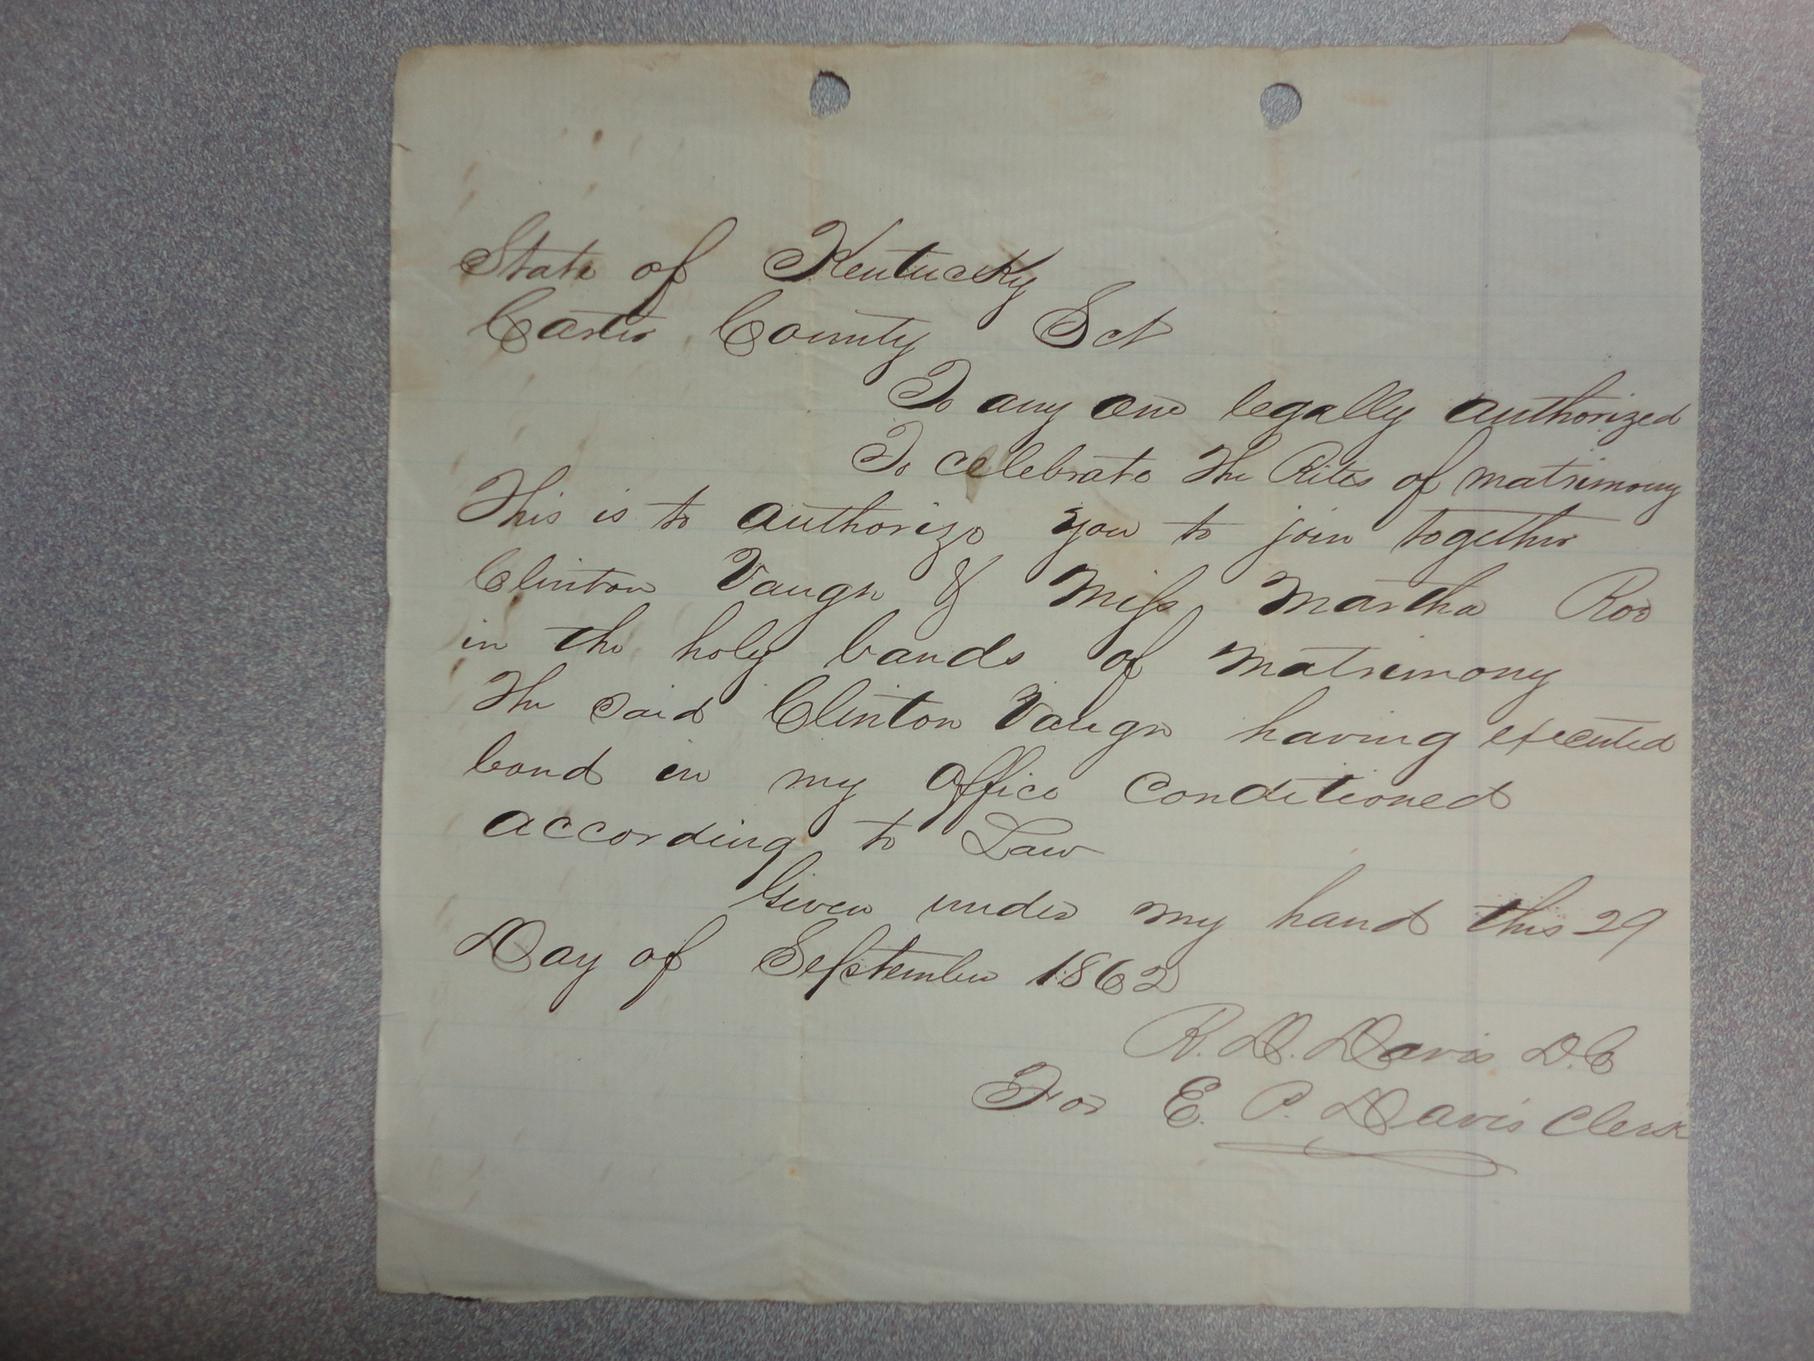 State of Kentucky
Carter County Sct
To any one legally authorized
To celebrate the Rites of matrimony
This is to authorize you to join together
Clinton Vaugn & Miss Martha Roe
in the holy bands of matrimony
The said Clinton Vaugn having executed
bond in my office conditioned
according to Law
Given under my hand this 29
Day of September 1862
R. D. Davis D.C
For E. P. Davis Clerk